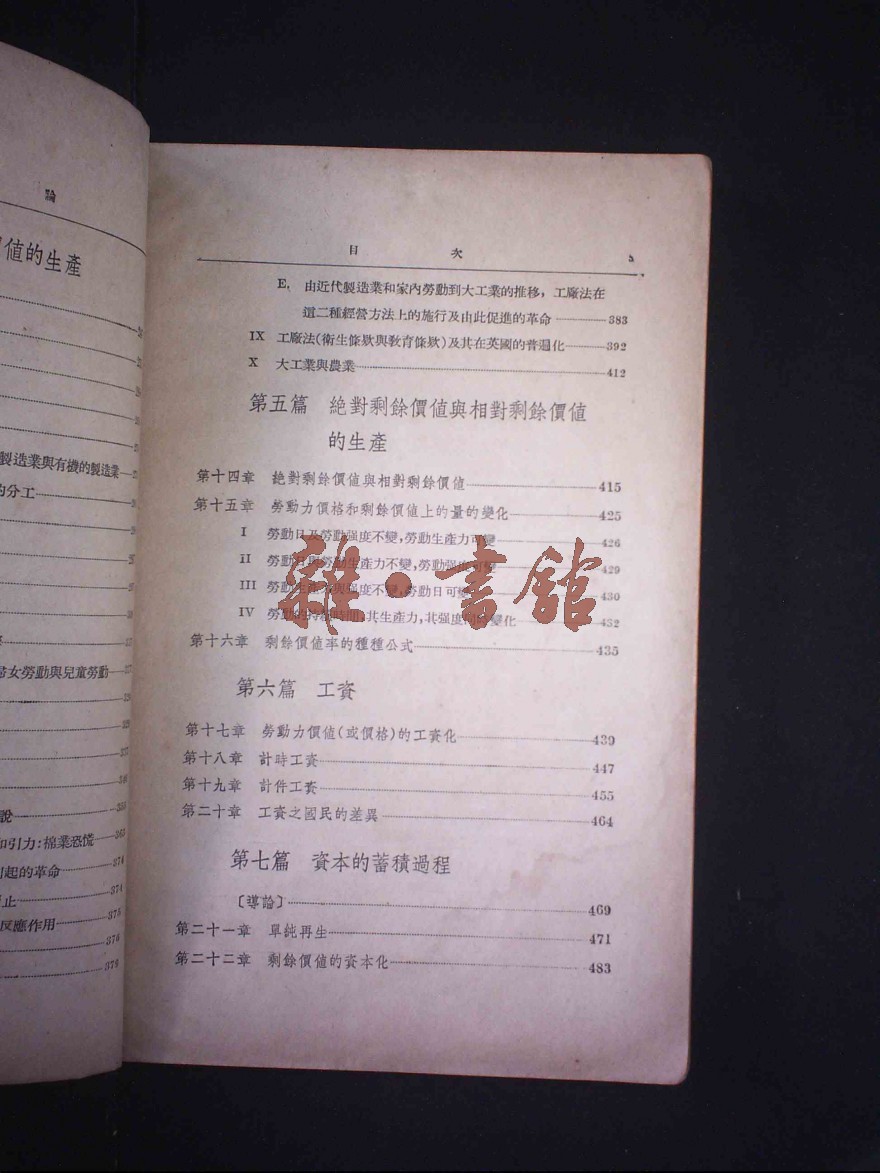 論
值的生產
製造業與有機的製造業
的分工
女勞動與兒童勞動
說
和引力:棉業恐慌
起的革命
止
反應作用
目 次 5
E. 由近代製造業和家內勞動到大工業的推移，工廠法在
這二種經營方法上的施行及由此促進的革命 383
IX 工廠法(衛生條欵與教育條欵)及其在英國的普遍化 392
X 大工業與農業 412
第五篇 絕對剩餘價值與相對剩餘價值
的生產
第十四章 絕對剩餘價值與相對剩餘價值 415
第十五章 勞動力價格和剩餘價值上的量的變化 425
I 勞動日及勞動强度不變,勞動生產力可變 426
II 勞動日與勞動生產力不變,勞動强度可變 429
III 勞動生產力與强度不變,勞動日可變 430
IV 勞動的持續時間,其生產力,其强度同時變化 432
第十六章 剩餘價值率的種種公式 435
第六篇 工資
第十七章 勞動力價值(或價格)的工資化 439
第十八章 計時工資 447
第十九章 計件工資 455
第二十章 工資之國民的差異 464
第七篇 資本的蓄積過程
〔導論〕 469
第二十一章 單純再生 471
第二十二章 剩餘價值的資本化 483
雜·書館